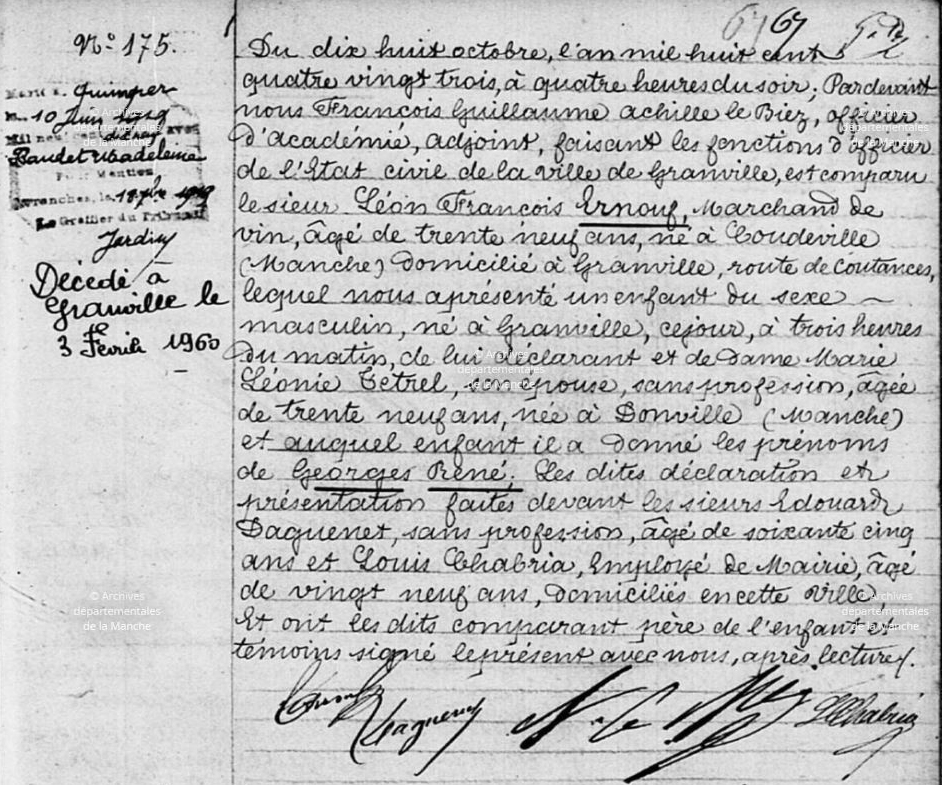 67 67
N° 175.
Marié à Quimper
le 10 Juin 1919
Mil neuf cent dix neuf avec
Baudet Madeleine
Pour Mention
Avranches, le 18 7bre 1919
Le Greffier du Tribunal
Jardin
Décédé à
Granville le
3 Février 1960
Du dix huit octobre, l'an mil huit cent
quatre vingt trois, à quatre heures du soir; Pardevant
nous François Guillaume achille le Biez, officier
d'académie, adjoint, faisant les fonctions d'officier
de l'Etat civil de la ville de Granville, est comparu
le sieur Léon François Ernouf, Marchand de
vin, âgé de trente neuf ans, né à Coudeville
(Manche) domicilié à Granville, route de Coutances,
lequel nous a présenté un enfant du sexe ~
masculin, né à Granville, ce jour, à trois heures
du matin, de lui déclarant et de Dame Marie
Léonie Tétrel, son épouse, sans profession, âgée
de trente neuf ans, née à Donville (Manche)
et auquel enfant il a donné les prénoms
de Georges René. Les dites déclaration et
présentation faites devant les sieurs Edouard
Daguenet, sans profession, âgé de soixante cinq
ans et Louis Chabria, Employé de Mairie, âgé
de vingt neuf ans, domiciliés en cette Ville,
Et ont les dits comparant père de l'enfant et
témoins signé le présent avec nous, après lecture.
Ernouf Daguenet LChabria
© Archives
départementales
de la Manche
© Archives
départementales
de la Manche
© Archives
départementales
de la Manche
© Archives
départementales
de la Manche
© Archives
départementales
de la Manche